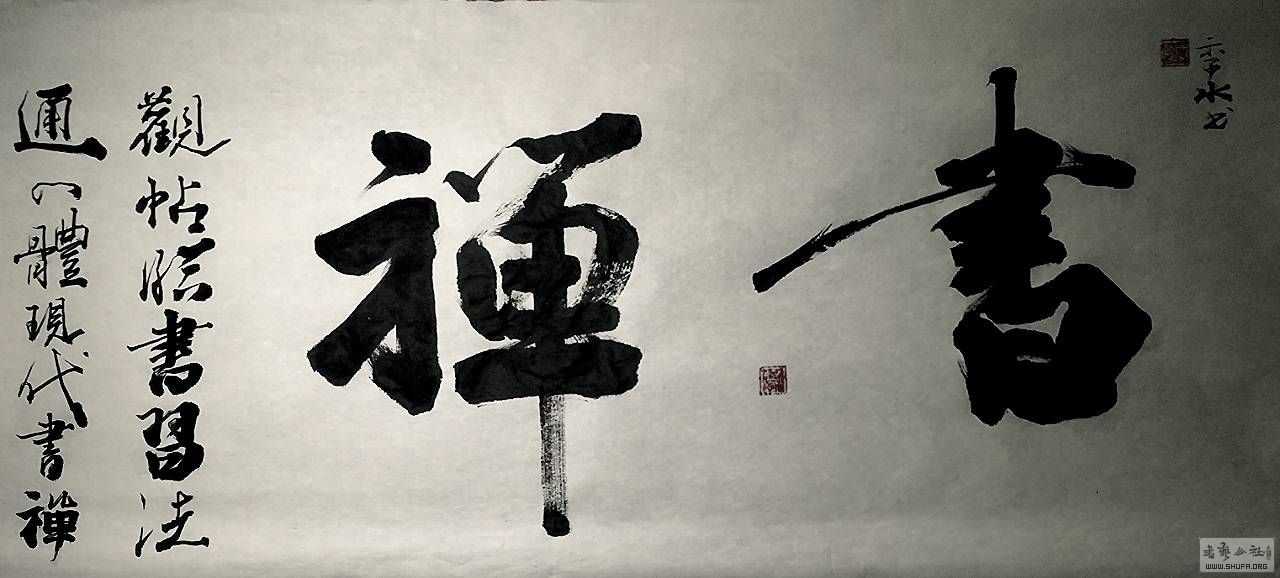 書禪
水书
觀帖臨書習法
通以體現代書禪
书艺公社
WWW.SHUFA.ORG